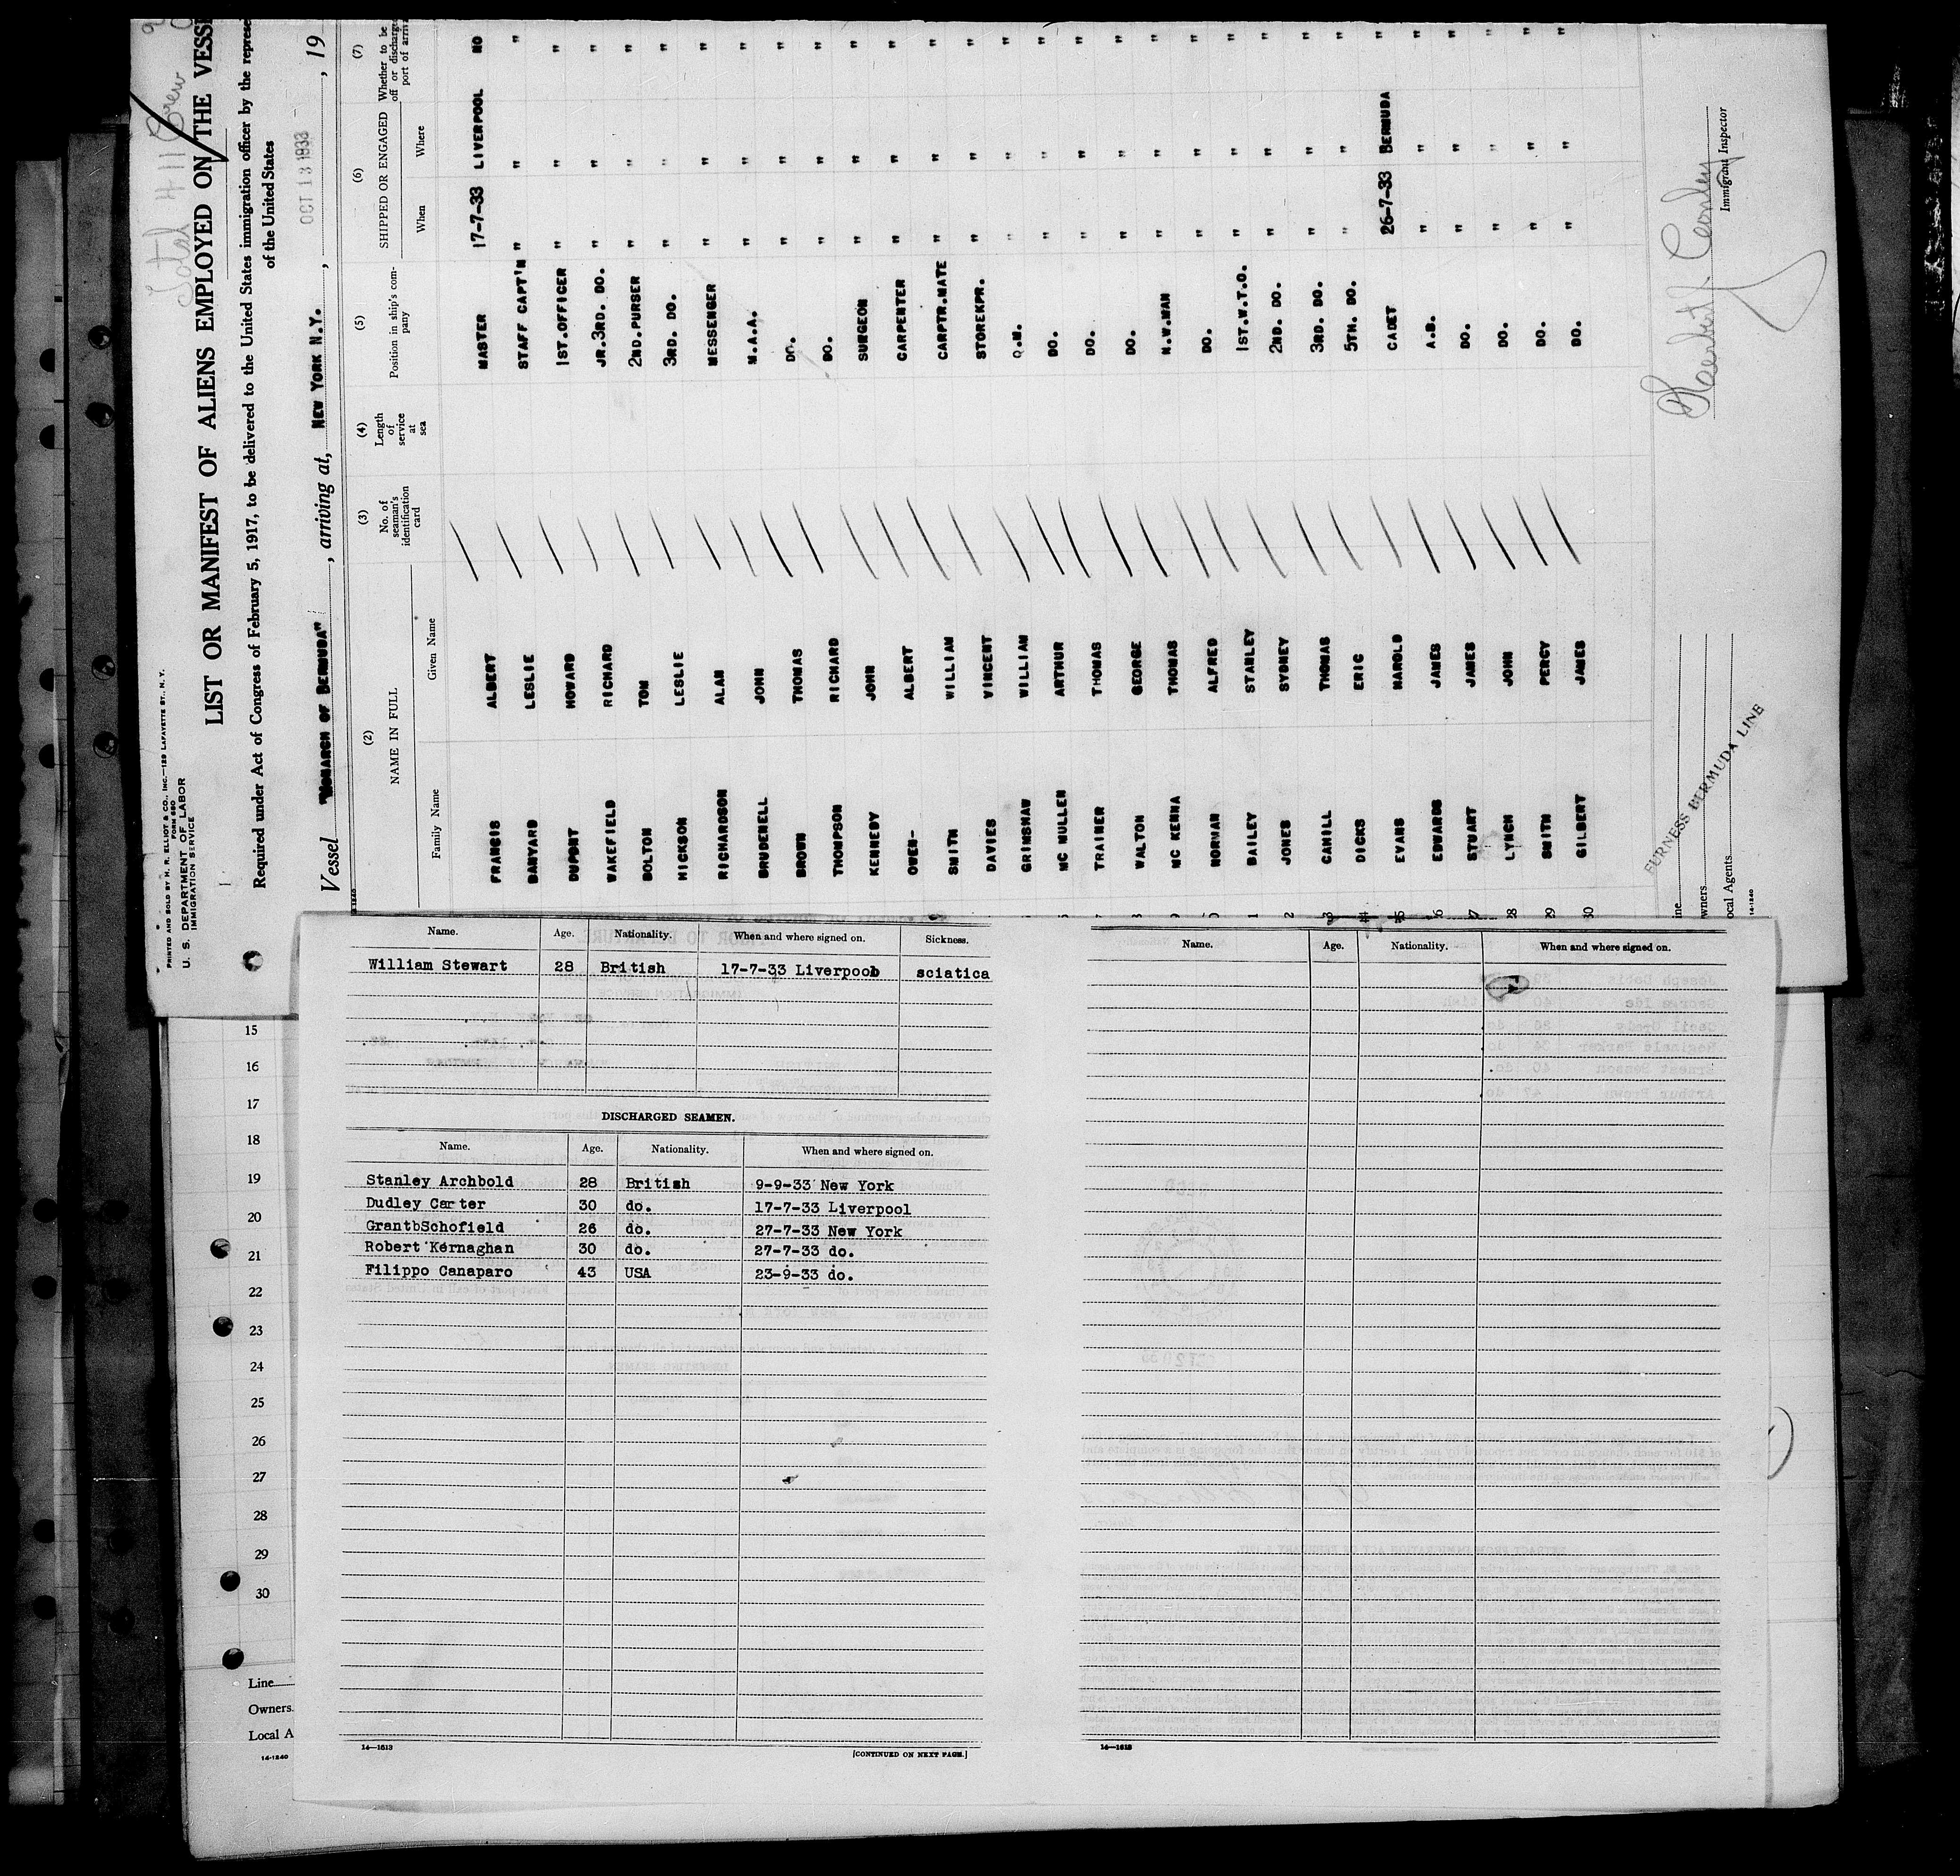 Total 411 Crew
PRINTED AND SOLD BY H. R. ELLIOT & CO., INC.—129 LAFAYETTE ST., N. Y.
FORM 680
U. S. DEPARTMENT OF LABOR
IMMIGRATION SERVICE
LIST OR MANIFEST OF ALIENS EMPLOYED ON THE VESS
Required under Act of Congress of February 5, 1917, to be delivered to the United States immigration officer by the represe
of the United States
Vessel "MONARCH OF BERMUDA", arriving at, NEW YORK N.Y., OCT 13 1933, 19
(2) (3) (4) (5) (6) (7)
NAME IN FULL No. of seaman's identification card Length of service at sea Position in ship's company SHIPPED OR ENGAGED Whether to be off or discharge port of arriva
Family Name Given Name When Where
FRANCIS ALBERT MASTER 17-7-33 LIVERPOOL NO
BANYARD LESLIE STAFF CAPT'N " " "
DUPONT HOWARD 1ST.OFFICER " " "
WAKEFIELD RICHARD JR.3RD. DO. " " "
BOLTON TOM 2ND.PURSER " " "
HICKSON LESLIE 3RD. DO. " " "
RICHARDSON ALAN MESSENGER " " "
BRUDENELL JOHN M.A.A. " " "
BROWN THOMAS DO. " " "
THOMPSON RICHARD DO. " " "
KENNEDY JOHN SURGEON " " "
OWEN- ALBERT CARPENTER " " "
SMITH WILLIAM CARPTR.MATE " " "
DAVIES VINCENT STOREKPR. " " "
GRIMSHAW WILLIAM Q.M. " " "
MC MULLEN ARTHUR DO. " " "
TRAINER THOMAS DO. " " "
WALTON GEORGE DO. " " "
MC KENNA THOMAS N.W.MAN " " "
NORMAN ALFRED DO. " " "
BAILEY STANLEY 1ST.W.T.O. " " "
JONES SYDNEY 2ND. DO. " " "
CAHILL THOMAS 3RD. DO. " " "
DICKS ERIC 5TH. DO. " " "
EVANS HAROLD CADET 26-7-33 BERMUDA "
EDWARDS JAMES A.B. " " "
STUART JAMES DO. " " "
LYNCH JOHN DO. " " "
SMITH PERCY DO. " " "
GILBERT JAMES DO. " " "
FURNESS BERMUDA LINE
ine
wners
ocal Agents
14-1240
Immigrant Inspector
Name. Age. Nationality. When and where signed on. Sickness.
William Stewart 28 British 17-7-33 Liverpool sciatica
DISCHARGED SEAMEN.
Name. Age. Nationality. When and where signed on.
Stanley Archbold 28 British 9-9-33 New York
Dudley Carter 30 do. 17-7-33 Liverpool
GrantbSchofield 26 do. 27-7-33 New York
Robert Kernaghan 30 do. 27-7-33 do.
Filippo Canaparo 43 USA 23-9-33 do.
14—1613
[CONTINUED ON NEXT PAGE.]
Name. Age. Nationality. When and where signed on.
14—1613
15
16
17
18
19
20
21
22
23
24
25
26
27
28
29
30
Line
Owners
Local A
14-1240